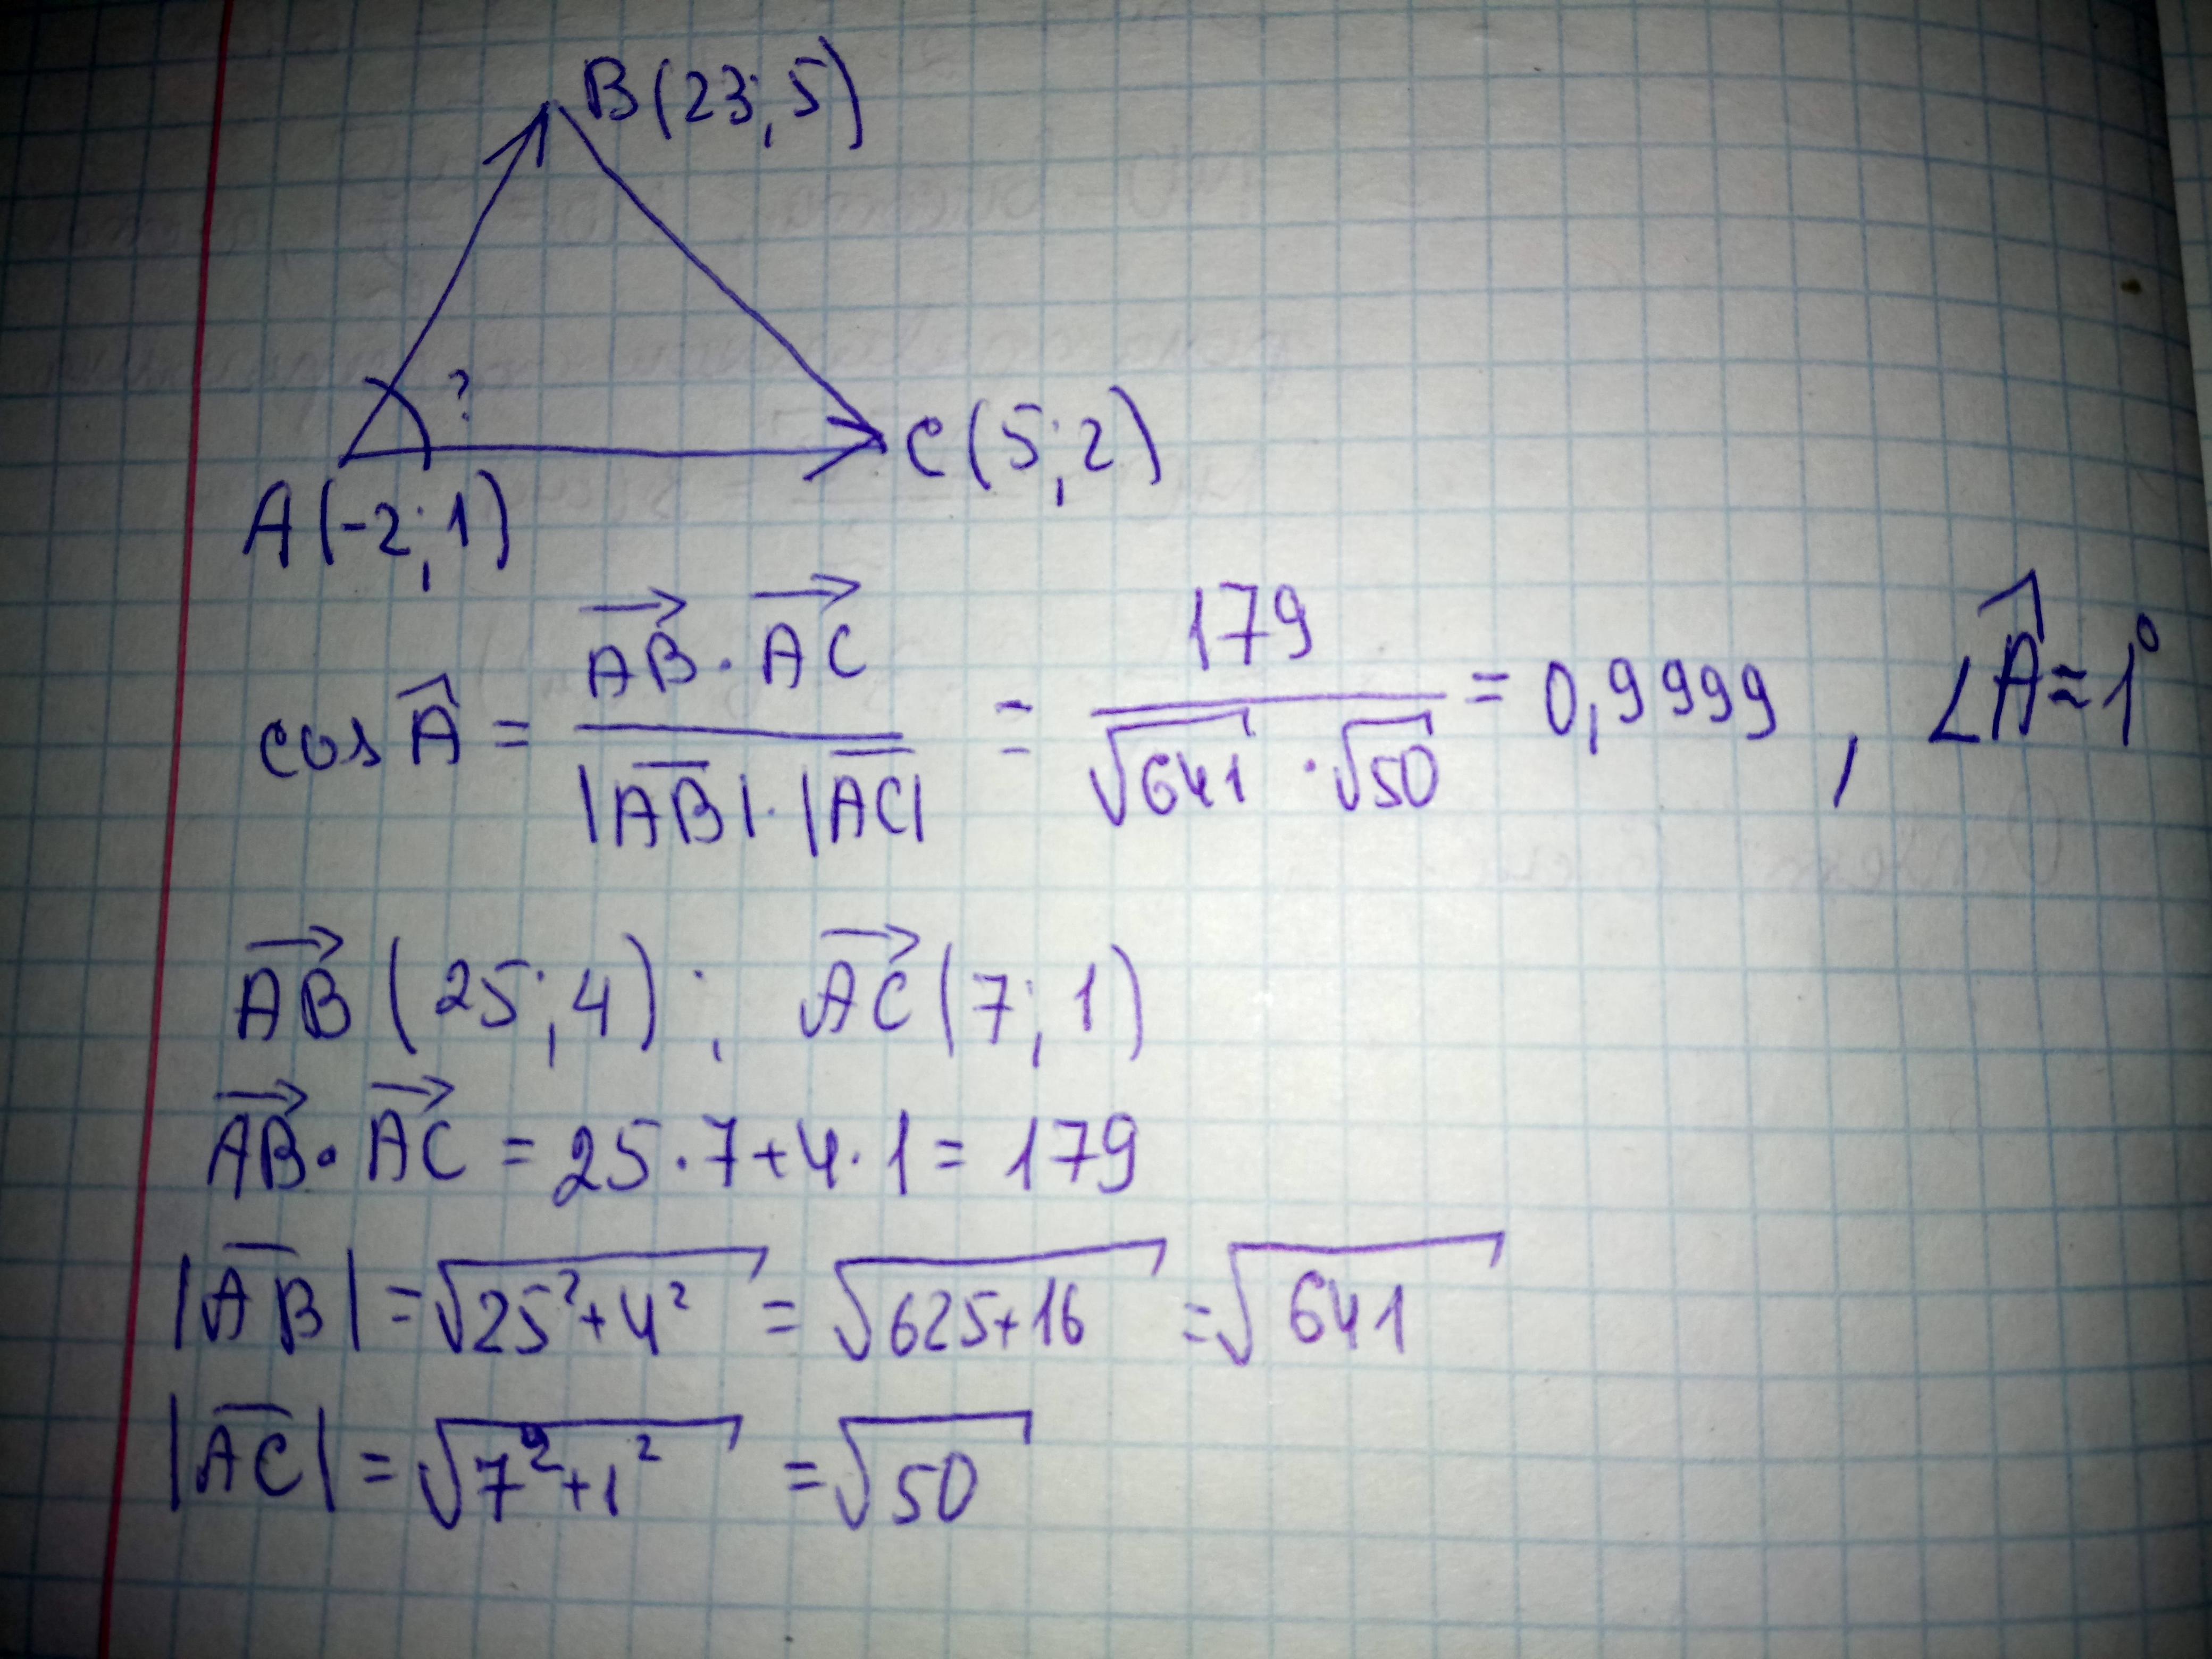 B(23;5)
?
C(5;2)
A(-2;1)
cos Â = AB⃗·AC⃗ / |A̅B̅|·|A̅C̅| = 179 / √641·√50 = 0,9999, ∠Â≈1°
AB⃗(25;4); AC⃗(7;1)
AB⃗·AC⃗ = 25·7+4·1 = 179
|A̅B̅| = √25²+4² = √625+16 = √641
|A̅C̅| = √7²+1² = √50